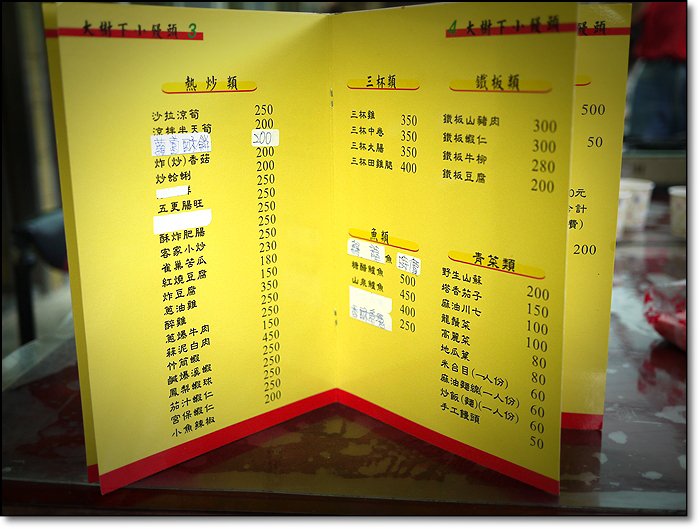 大樹下小饅頭 3
熱炒類
沙拉涼筍 250
涼拌半天筍 200
200
炸(炒)香菇 200
炒蛤蜊 200
250
五更腸旺 250
250
酥炸肥腸 250
客家小炒 250
雀巢苦瓜 230
紅燒豆腐 180
炸豆腐 150
蔥油雞 350
醉雞 250
蔥爆牛肉 250
蒜泥白肉 150
竹筒蝦 450
鹹爆溪蝦 250
鳳梨蝦球 250
茄汁蝦仁 250
宮保蝦仁 250
小魚辣椒 200
4 大樹下小饅頭
三杯類
三杯雞 350
三杯中卷 350
三杯大腸 350
三杯田雞腿 400
魚類
魚
糖醋鱸魚 500
山泉鱸魚 450
400
250
鐵板類
鐵板山豬肉 300
鐵板蝦仁 300
鐵板牛柳 280
鐵板豆腐 200
青菜類
野生山蘇 200
塔香茄子 150
麻油川七 100
龍鬚菜 100
高麗菜 80
地瓜葉 80
米台目(一人份) 60
麻油麵線(一人份) 60
炒飯(麵)(一人份) 60
手工饅頭 50
饅頭
500
50
0元
計
費)
200